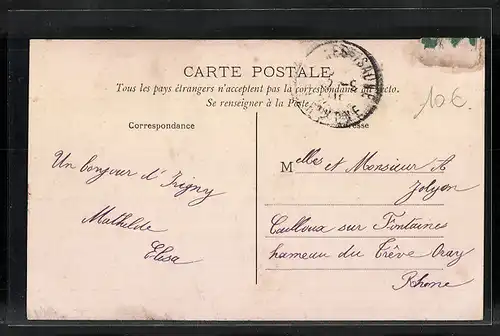 CARTE POSTALE
Tous les pays étrangers n'acceptent pas la correspondance au recto.
Se renseigner à la Poste
Correspondance
Adresse
10 €
Un bonjour d'Irigny
Mathilde
Elisa
Melle et Monsieur A
Jolyon
Cailloux sur Fontaines
hameau du Trêve Oray
Rhône